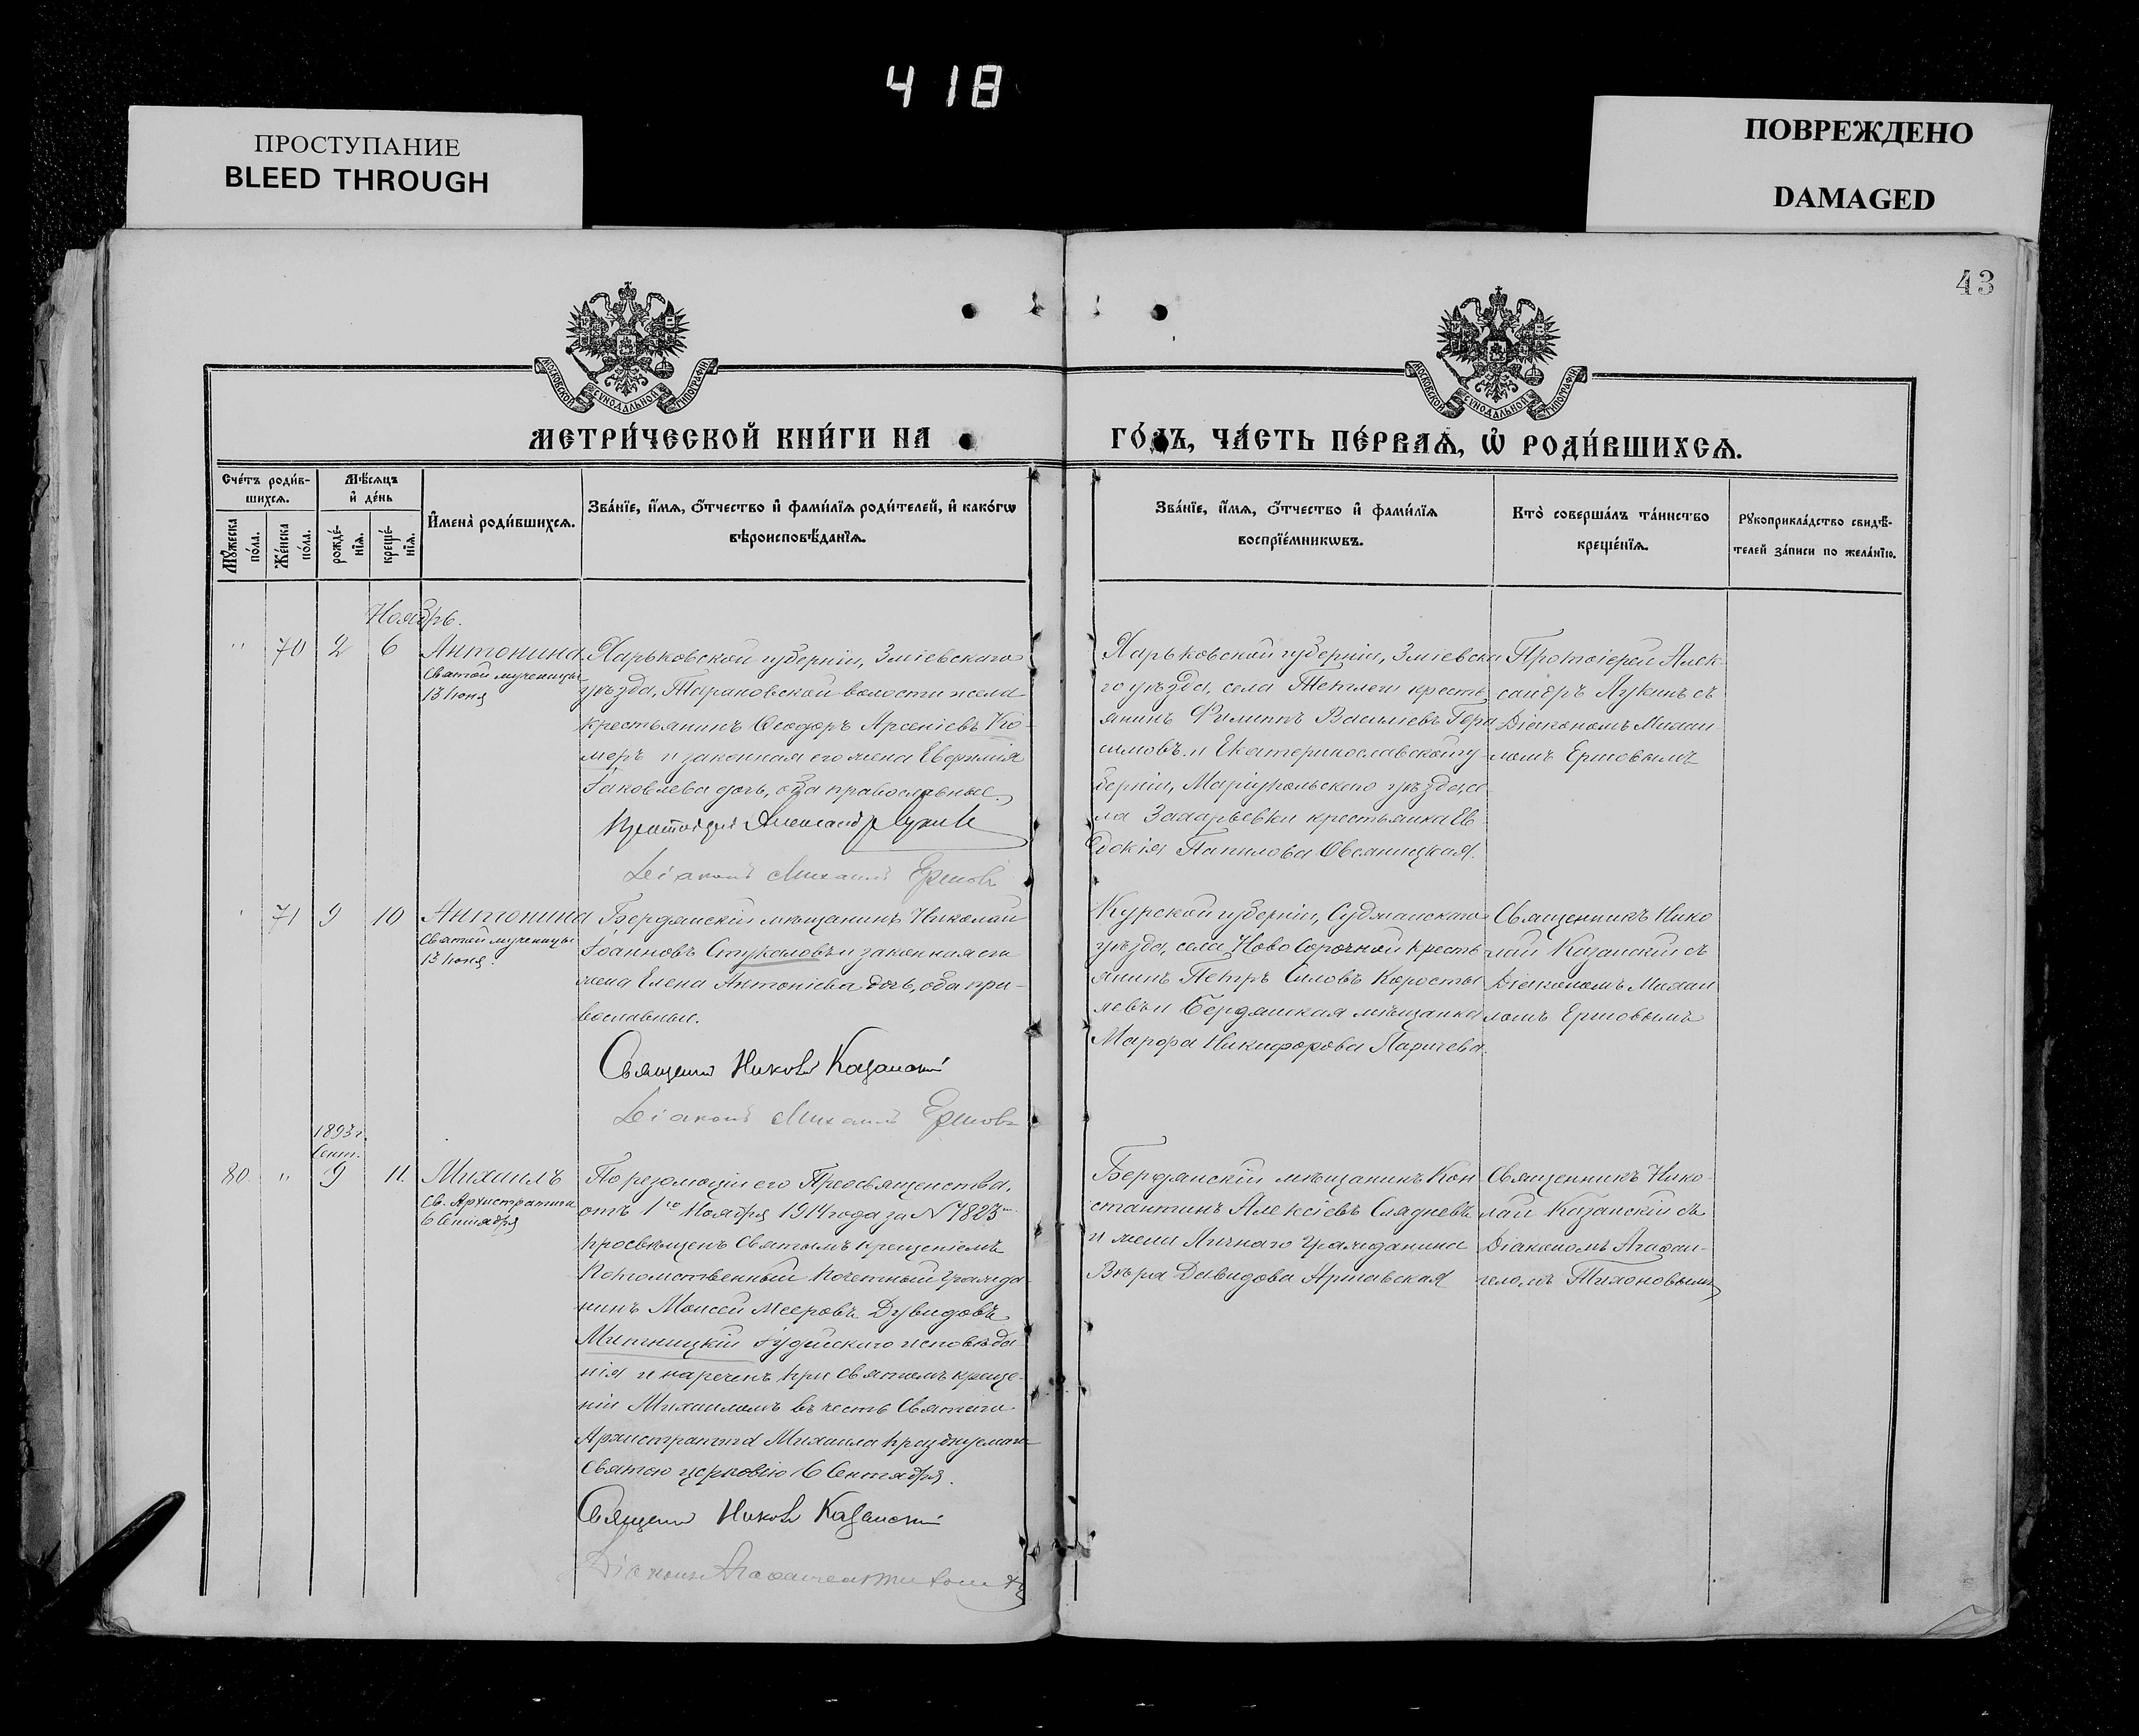 418
ПРОСТУПАНИЕ
BLEED THROUGH
ПОВРЕЖДЕНО
DAMAGED
43
МОСКОВСКОЙ СѴНОДАЛЬНОЙ ТИПОГРАФІИ
МОСКОВСКОЙ СѴНОДАЛЬНОЙ ТИПОГРАФІИ
МЕТРИ́ЧЕСКОЙ КНИ́ГИ НА
ГО́ДЪ, ЧА́СТЬ ПЕ́РВАѦ, Ѡ҆ РОДИ́ВШИХСѦ.
Сче́тъ роди́в-
шихсѧ.
Мꙋ́жеска
по́ла.
Же́нска
по́ла.
Мѣ́сѧцъ
и҆ де́нь
рожде́-
нїѧ.
креще́-
нїѧ.
И҆мена̀ роди́вшихсѧ.
Зва́нїе, и҆́мѧ, ѻ҆́тчество и҆ фами́лїѧ роди́телей, и҆ како́гѡ
вѣроисповѣ́данїѧ.
Зва́нїе, и҆́мѧ, ѻ҆́тчество и҆ фами́лїѧ
воспрїе́мникѡвъ.
Кто̀ соверша́лъ та́инство
креще́нїѧ.
Рꙋкоприкла́дство свидѣ́-
телей за́писи по жела́нїю.
Ноябрь.
" 70 2 6 Антонина
Святой мученицы
13 Іюня
Харьковской губерніи, Зміевскаго
уѣзда, Тарановской волости и села
крестьянинъ Ѳеодоръ Арсеніевъ Ко-
меръ и законная его жена Евфимія
Іаковлева дочь, оба православные.
Протоіерей Александръ Лукинъ
Діаконъ Михаилъ Ершовъ
Харьковской губерніи, Зміевска
го уѣзда, села крестъ
янинъ Филиппъ Василіевъ Гера
симовъ и Екатеринославской гу-
берніи, Маріупольскаго уѣзда, се
ла Захарьевки крестьянка Ев
докія
Протоіерей Алек-
сандръ Лукинъ съ
Діакономъ Михаи-
ломъ Ершовымъ
71 9 10 Антонина
Святой мученицы
13 Іюня.
Бердянскій мѣщанинъ Николай
Іоанновъ Стукаловъ и законная его
жена Елена Антоніева дочь, оба пра-
вославные.
Священникъ Николай Казанскій
Діаконъ Михаилъ Ершовъ
Курской губерніи, Суджанскаго
уѣзда, села Ново Сорочной кресть
янинъ Петръ Силовъ Коросты
левъ и Бердянская мѣщанка
Марфа Никифорова
Священникъ Нико
лай Казанскій съ
Діакономъ Михаи
ломъ Ершовымъ
1893 г.
Сент.
80 " 9 11 Михаилъ
Св. Архистратига
6 Сентября
По резолюціи его Преосвященства,
отъ 1го Ноября 1914 года за № 7823
просвѣщенъ Святымъ крещеніемъ
Потомственный Почетный Гражда
нинъ Моисей Мееровъ Дувидовъ
Митницкій Іудейскаго исповѣда
нія и нареченъ при Святомъ креще-
ніи Михаиломъ въ честь Святаго
Архистратига Михаила празднуемаго
Святою церковію 6 Сентября.
Священникъ Николай Казанскій
Діаконъ Агафангелъ Тихоновъ
Бердянскій мѣщанинъ Кон
стантинъ Алексіевъ
и жена Личнаго Гражданина
Вѣра Давидова
Священникъ Нико-
лай Казанскій съ
Діакономъ Агафан-
геломъ Тихоновымъ